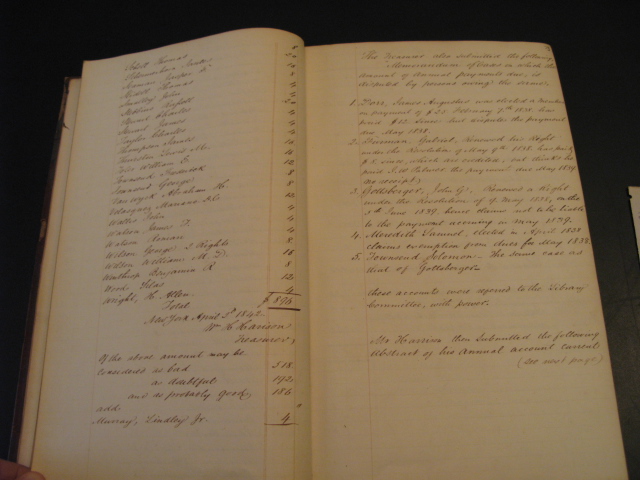 Schell Thomas
Smedley John
Stewart Charles
Stewart James
Taylor Charles
Thompson James
Tyler William E.
Townsend Frederick 8
Townsend George 8
Van Wyck Abraham H. 12
Velasquez Mariano de la 4
Walter John 4
Watson James T. 4
Watson Roman 4
Wilson George, 2 Rights 8
Wilson William M. D. 18
Winthrop Benjamin R. 8
Wood Silas 12
Wright, H. Allen 4
Total $ 896
New York April 5th 1842
Wm H. Harison
Treasurer,
Of the above amount may be
considered as bad 518.
as doubtful 192.
and as probably good, 186
add
Murray, Lindley Jr. 4
The Treasurer also submitted the following
Memorandum of Cases in which the
amount of annual payments due, is
disputed by persons owing the same.
1. James Augustus was elected a member
on payment of $25 February 7th 1838. has
paid $12. Since but disputes the payment
due May 1838.
2. Gabriel, renewed his Right
under the Resolution of May 9th 1838. has paid
$ 5 since, which are credited, but thinks he
paid the payment due May 1839
no receipt)
3. Gottsberger, John G., Renewed a Right
under the Resolution of 9 May 1838, on the
5th June 1839, hence claims not to be liable
to the payment accruing in May 1839.
4. Meredith Samuel, elected in April 1838
claims exemption from dues for May 1838.
5. Townsend Solomon — The same case as
that of Gottsberger
these accounts were referred to the Library
Committee, with power.
Mr Harison then Submitted the following
Abstract of his Annual account current
(see next page)